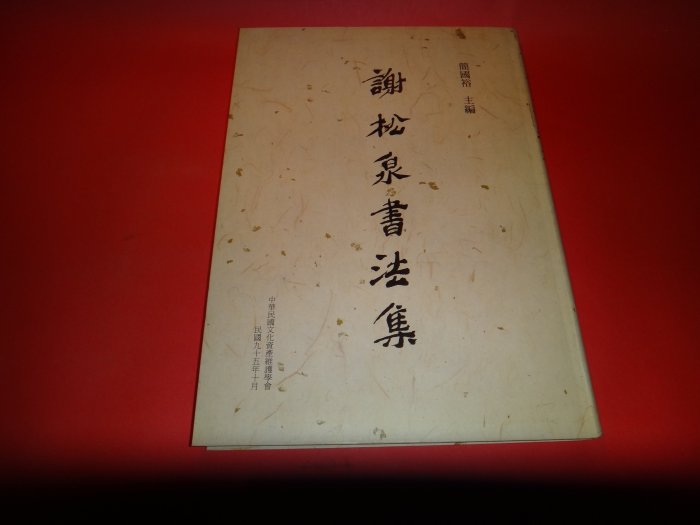 簡國裕 主編
謝松泉書法集
中華民國文化資產維護學會
民國九十五年十月